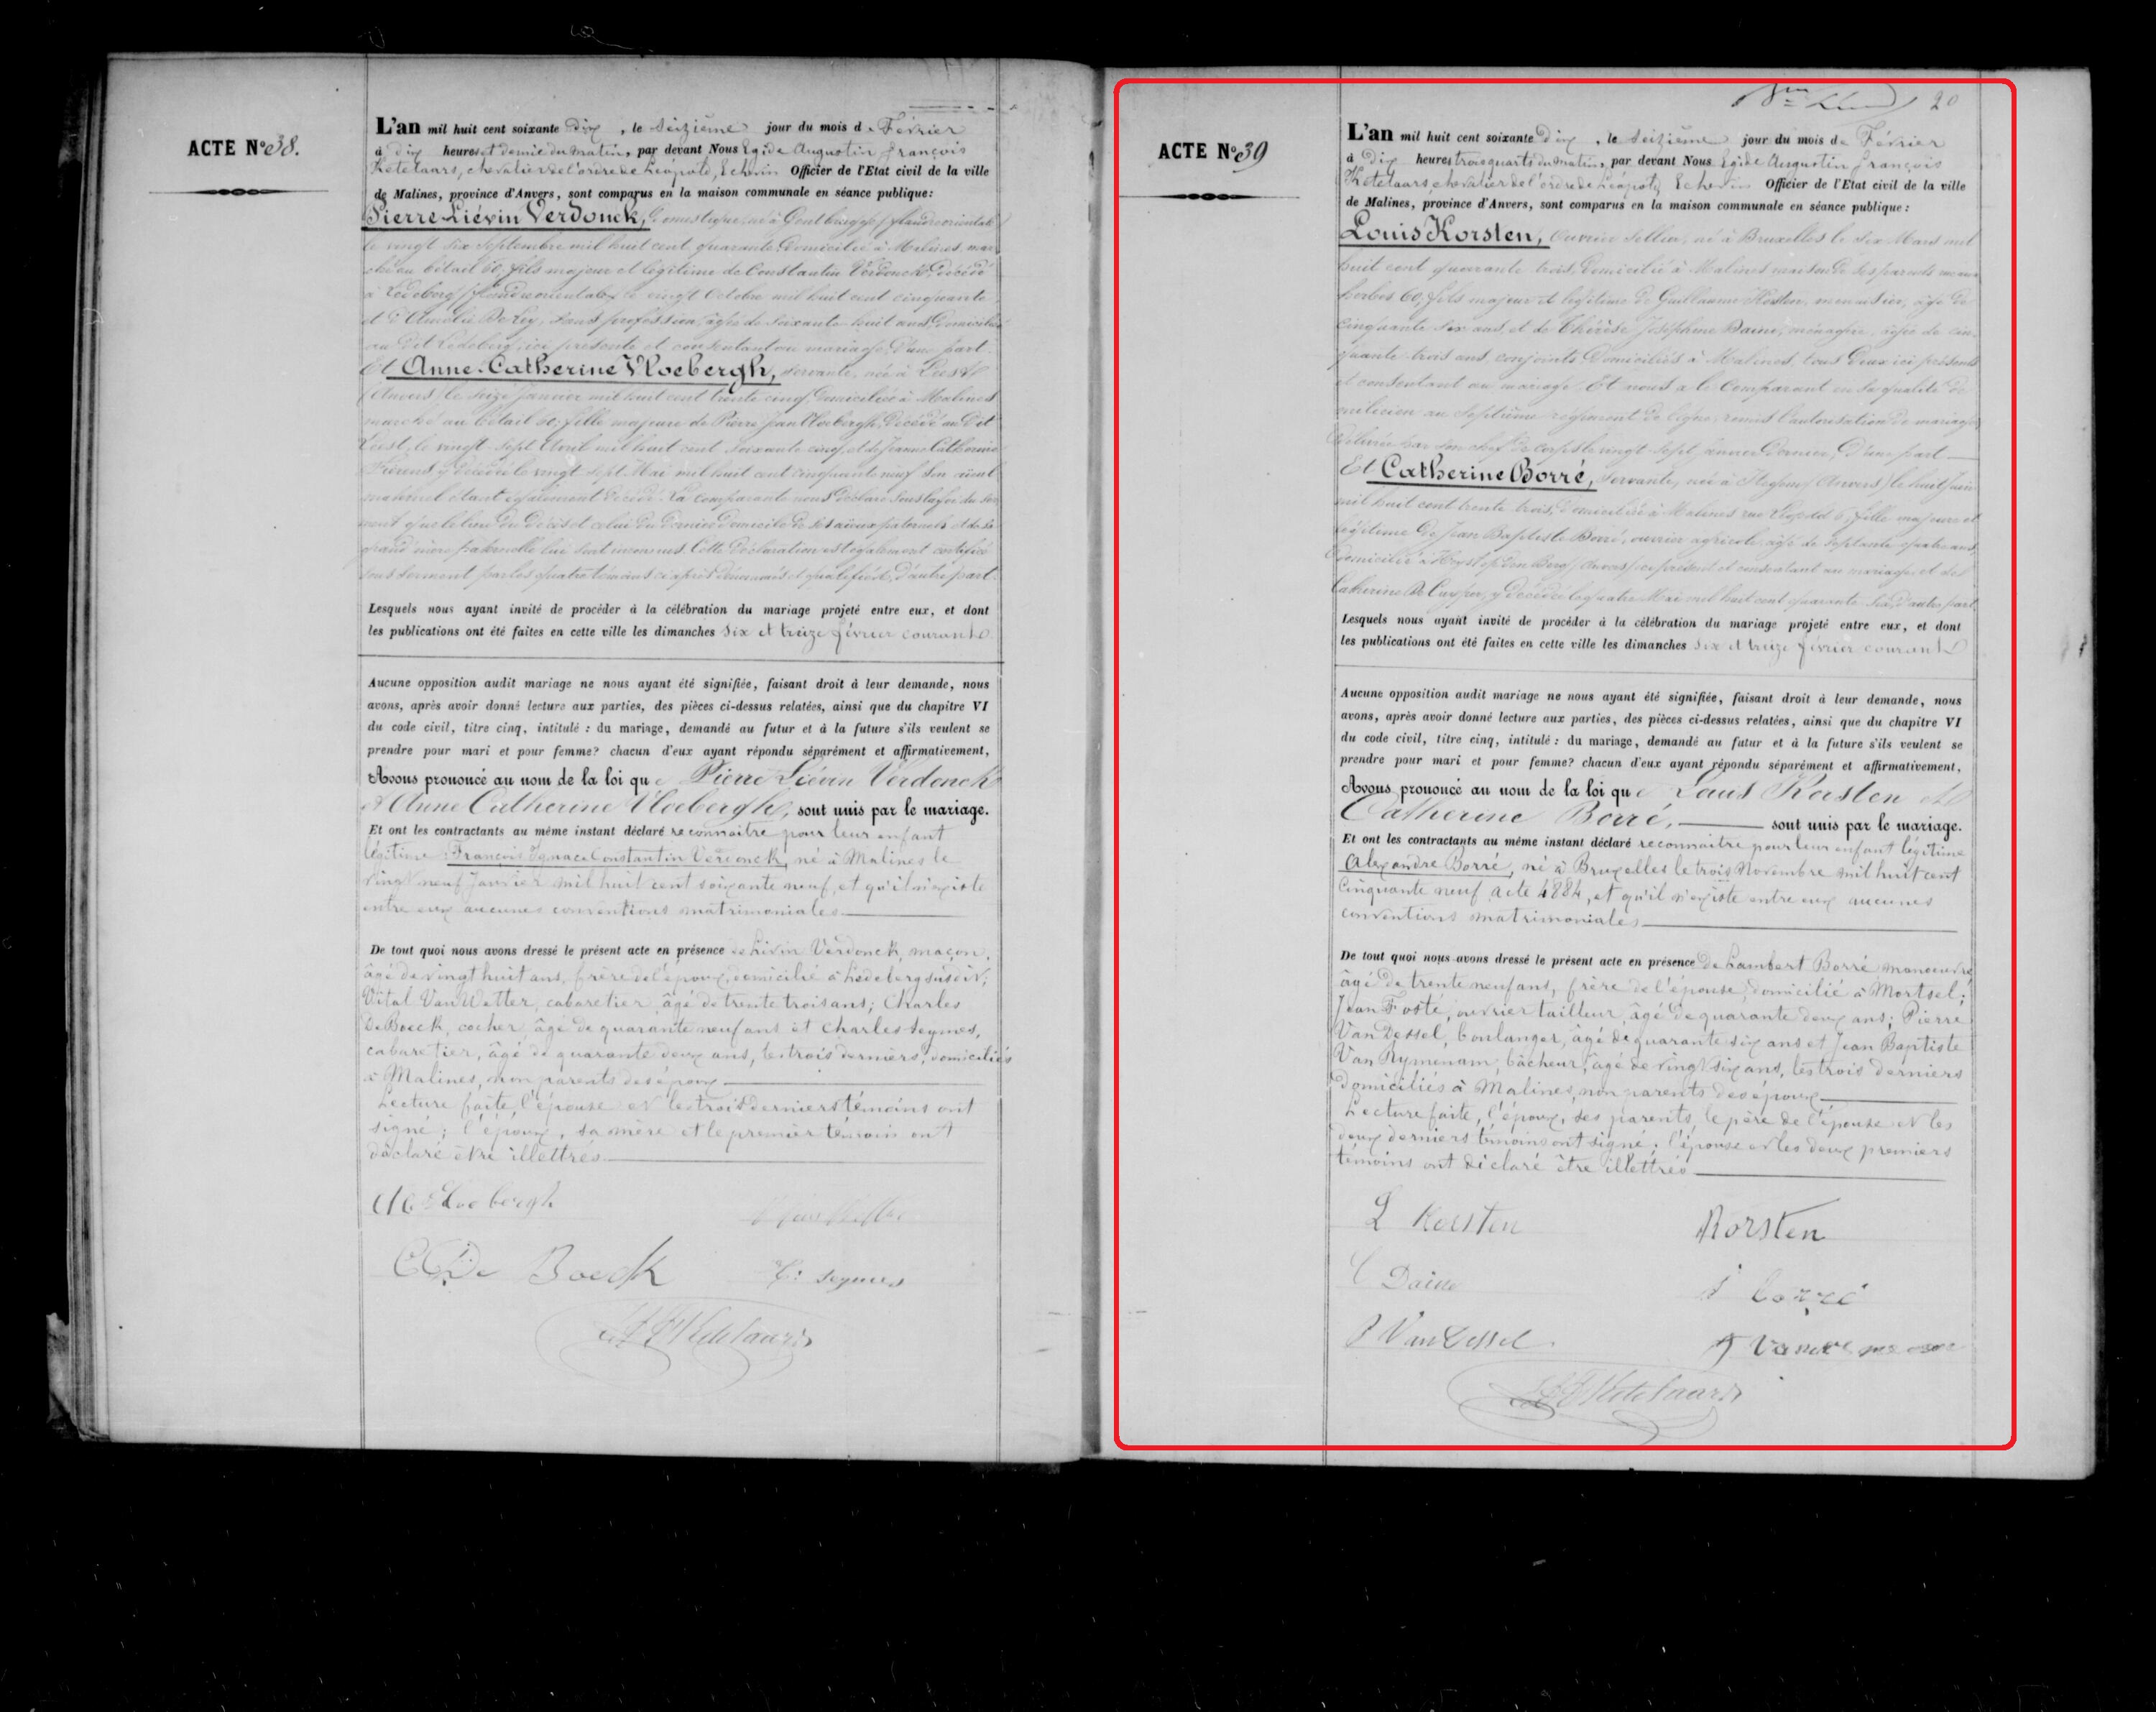 ACTE N° 38.
L'an mil huit cent soixante dix, le seizième jour du mois de Février
à dix heures et demie du matin, par devant Nous Egide Augustin François
Ketelaars, chevalier de l'ordre de Léopold, Echevin Officier de l'Etat civil de la ville
de Malines, province d'Anvers, sont comparus en la maison communale en séance publique:
Pierre Liévin Verdonck, domestique, né à Gentbrugge (flandre orientale)
le vingt six septembre mil huit cent quarante, domicilié à Malines, mar-
ché au bétail 60, fils majeur et légitime de Constantin Verdonck, décédé
à Ledeberg (flandre orientale) le vingt Octobre mil huit cent cinquante
et d'Amélie De Ley, sans profession, âgée de soixante huit ans, domiciliée
au dit Ledeberg, ici présente et consentant au mariage, d'une part
Et Anne-Catherine Vloebergh, servante, née à Leest
(Anvers) le seize janvier mil huit cent trente cinq, domiciliée à Malines
marché au bétail 60, fille majeure de Pierre Jean Vloebergh, décédé au dit
Leest, le vingt sept Avril mil huit cent soixante cinq, et de Jeanne Catherine
y décédée le vingt sept Mai mil huit cent cinquante neuf son aïeul
maternel étant également décédé. La comparante nous déclare sous la foi du ser-
ment que le lieu du décès et celui du dernier domicile de ses aïeux paternels et de sa
grand'mère maternelle lui sont inconnus. Cette déclaration est également certifiée
sous serment par les quatre témoins ci-après dénommés et qualifiés, d'autre part.
Lesquels nous ayant invité de procéder à la célébration du mariage projeté entre eux, et dont
les publications ont été faites en cette ville les dimanches six et treize février courant
Aucune opposition audit mariage ne nous ayant été signifiée, faisant droit à leur demande, nous
avons, après avoir donné lecture aux parties, des pièces ci-dessus relatées, ainsi que du chapitre VI
du code civil, titre cinq, intitulé : du mariage, demandé au futur et à la future s'ils veulent se
prendre pour mari et pour femme? chacun d'eux ayant répondu séparément et affirmativement,
Avons prononcé au nom de la loi que Pierre Liévin Verdonck
et Anne Catherine Vloebergh, sont unis par le mariage.
Et ont les contractants au même instant déclaré reconnaître pour leur enfant
légitime François Ignace Constantin Verdonck, né à Malines le
vingt neuf Janvier mil huit cent soixante neuf, et qu'il n'existe
entre eux aucunes conventions matrimoniales
De tout quoi nous avons dressé le présent acte en présence de Livin Verdonck, maçon,
âgé de vingt huit ans, frère de l'époux, domicilié à Ledeberg susdit;
Vital Van Wetter, cabaretier, âgé de trente trois ans; Charles
De Boeck, cocher, âgé de quarante neuf ans et Charles Seymes,
cabaretier, âgé de quarante deux ans, les trois derniers, domiciliés
à Malines, non parents des époux
Lecture faite, l'épouse et les trois derniers témoins ont
signé; l'époux, sa mère et le premier témoin ont
déclaré être illettrés
AC Vloebergh
C De Boeck
Ch Seymes
Ketelaars
20
ACTE N° 39
L'an mil huit cent soixante dix, le seizième jour du mois de Février
à dix heures trois quarts du matin, par devant Nous Egide Augustin François
Ketelaars, chevalier de l'ordre de Léopold, Echevin Officier de l'Etat civil de la ville
de Malines, province d'Anvers, sont comparus en la maison communale en séance publique:
Louis Korsten, ouvrier sellier, né à Bruxelles le six Mars mil
huit cent quarante trois, domicilié à Malines maison de ses parents
60, fils majeur et légitime de Guillaume Korsten, menuisier, âgé de
cinquante six ans, et de Thérèse Joséphine Daine, ménagère, âgée de cin-
quante-trois ans, conjoints domiciliés à Malines, tous deux ici présents
et consentant au mariage. Et nous a le comparant en sa qualité de
milicien au septième régiment de ligne, remis l'autorisation de mariage
délivrée par son chef de corps le vingt sept janvier dernier, d'une part
Et Catherine Borré, servante, née à Itegem (Anvers) le huit Juin
mil huit cent trente trois, domiciliée à Malines rue Léopold 6, fille majeure et
légitime de Jean Baptiste Borré, ouvrier agricole, âgé de septante quatre ans,
domicilié à Heyst-op-den-Berg (Anvers) ici présent et consentant au mariage et de
Catherine De Cuyper, y décédée le quatre Mai mil huit cent quarante six, d'autre part.
Lesquels nous ayant invité de procéder à la célébration du mariage projeté entre eux, et dont
les publications ont été faites en cette ville les dimanches six et treize février courant
Aucune opposition audit mariage ne nous ayant été signifiée, faisant droit à leur demande, nous
avons, après avoir donné lecture aux parties, des pièces ci-dessus relatées, ainsi que du chapitre VI
du code civil, titre cinq, intitulé : du mariage, demandé au futur et à la future s'ils veulent se
prendre pour mari et pour femme? chacun d'eux ayant répondu séparément et affirmativement,
Avons prononcé au nom de la loi que Louis Korsten et
Catherine Borré, sont unis par le mariage.
Et ont les contractants au même instant déclaré reconnaître pour leur enfant légitime
Alexandre Borré, né à Bruxelles le trois Novembre mil huit cent
cinquante neuf acte 4884, et qu'il n'existe entre eux aucunes
conventions matrimoniales
De tout quoi nous avons dressé le présent acte en présence de Lambert Borré manoeuvre,
âgé de trente neuf ans, frère de l'épouse, domicilié à Mortsel;
Jean Fosté, ouvrier tailleur, âgé de quarante deux ans; Pierre
Van Dessel, boulanger, âgé de quarante six ans et Jean Baptiste
Van Rymenam, bâcheur, âgé de vingt six ans, les trois derniers
domiciliés à Malines, non parents des époux
Lecture faite, l'époux, ses parents, le père de l'épouse et les
deux derniers témoins ont signé; l'épouse et les deux premiers
témoins ont déclaré être illettrés
L Korsten
Korsten
Daine
Borré
P Van Dessel
Ketelaars